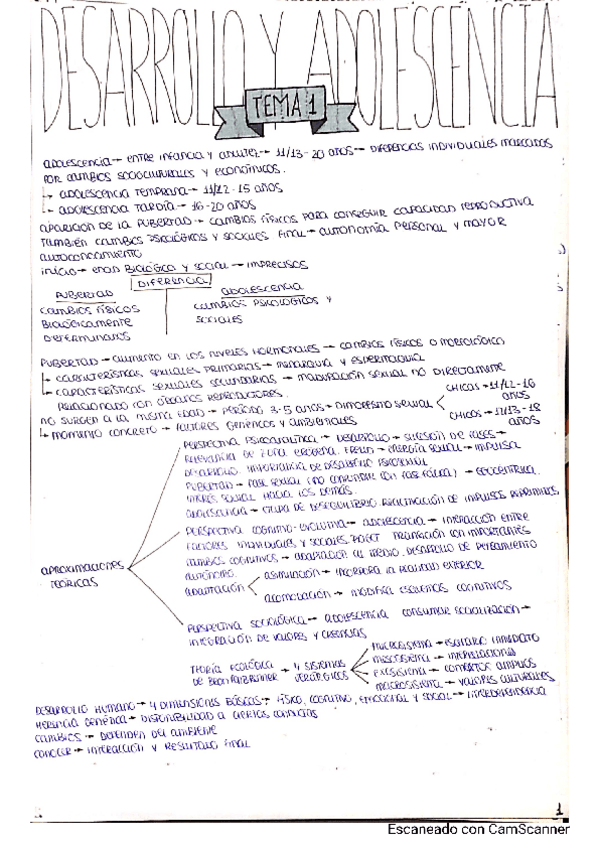 DESARROLLO Y ADOLESCENCIA
TEMA 1
ADOLESCENCIA → ENTRE INFANCIA Y ADULTEZ → 11/13-20 AÑOS → DIFERENCIAS INDIVIDUALES MARCADAS
POR CAMBIOS SOCIOCULTURALES Y ECONÓMICOS.
↳ ADOLESCENCIA TEMPRANA → 11/12-15 AÑOS
↳ ADOLESCENCIA TARDÍA → 16-20 AÑOS
APARICIÓN DE LA PUBERTAD → CAMBIOS FÍSICOS PARA CONSEGUIR CAPACIDAD REPRODUCTIVA
TAMBIÉN CAMBIOS PSICOLÓGICOS Y SOCIALES FINAL → AUTONOMÍA PERSONAL Y MAYOR
AUTOCONOCIMIENTO
INICIO → EDAD BIOLÓGICA Y SOCIAL → IMPRECISOS
DIFERENCIA
PUBERTAD
CAMBIOS FÍSICOS
BIOLÓGICAMENTE
DETERMINADOS
ADOLESCENCIA
CAMBIOS PSICOLÓGICOS Y
SOCIALES
PUBERTAD → AUMENTO EN LOS NIVELES HORMONALES → CAMBIOS FÍSICOS O MORFOLÓGICO
↳ CARACTERÍSTICAS SEXUALES PRIMARIAS → MENARQUIA Y ESPERMARQUIA
↳ CARACTERÍSTICAS SEXUALES SECUNDARIAS → MADURACIÓN SEXUAL NO DIRECTAMENTE
RELACIONADO CON ÓRGANOS REPRODUCTORES.
NO SURGEN A LA MISMA EDAD → PERÍODO 3-5 AÑOS → DIMORFISMO SEXUAL
CHICAS → 11/12-16
AÑOS
CHICOS → 12/13-18
AÑOS
↳ MOMENTO CONCRETO → FACTORES GENÉTICOS Y AMBIENTALES
APROXIMACIONES
TEÓRICAS
PERSPECTIVA PSICOANALÍTICA → DESARROLLO → SUCESIÓN DE FASES →
RELEVANCIA DE ZONA ERÓGENA. FREUD → ENERGÍA SEXUAL → IMPULSA
DESARROLLO. IMPORTANCIA DE DESARROLLO PSICOSEXUAL
PUBERTAD → FASE SEXUAL (NO CONFUNDIR CON FASE FÁLICA) → EGOCÉNTRICA.
INTERÉS SEXUAL HACIA LOS DEMÁS.
ADOLESCENCIA → ETAPA DE DESEQUILIBRIO. REACTIVACIÓN DE IMPULSOS REPRIMIDOS
PERSPECTIVA COGNITIVO-EVOLUTIVA → ADOLESCENCIA → INTERACCIÓN ENTRE
FACTORES INDIVIDUALES Y SOCIALES. PIAGET TRANSICIÓN CON IMPORTANTES
CAMBIOS COGNITIVOS → ADAPTACIÓN AL MEDIO. DESARROLLO DE PENSAMIENTO
AUTÓNOMO.
ADAPTACIÓN
ASIMILACIÓN → INCORPORA LA REALIDAD EXTERIOR
ACOMODACIÓN → MODIFICA ESQUEMAS COGNITIVOS
PERSPECTIVA SOCIOLÓGICA → ADOLESCENCIA CONSUMAR SOCIALIZACIÓN →
INTEGRACIÓN DE VALORES Y CREENCIAS
TEORÍA ECOLÓGICA
DE BRONFENBRENNER → 4 SISTEMAS
MICROSISTEMA → ESCENARIO INMEDIATO
MESOSISTEMA → INTERRELACIONA
EXOSISTEMA → CONTEXTOS AMPLIOS
MACROSISTEMA → VALORES CULTURALES
DESARROLLO HUMANO → 4 DIMENSIONES BÁSICAS → FÍSICO, COGNITIVO, EMOCIONAL Y SOCIAL → INTERDEPENDENCIA
HERENCIA GENÉTICA → DISPONIBILIDAD A CIERTAS CONDUCTAS
CAMBIOS → DEPENDEN DEL AMBIENTE
CONOCER → INTERACCIÓN Y RESULTADO FINAL
1
Escaneado con CamScanner